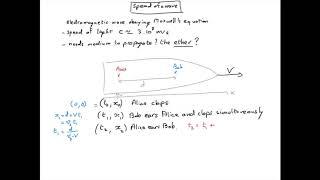 Speed of a wave
- electromagnetic wave obeying Maxwell's equation
- speed of light c ≃ 3·10⁸ m/s
- needs medium to propagate? the ether?
Alice
Bob
d
V
x
(0,0) = (t₀, x₀) Alice claps
x₁ = d + V t₁
(t₁, x₁) Bob ears Alice and claps simultaneously
(t₂, x₂) Alice ears Bob. t₂ = t₁ +